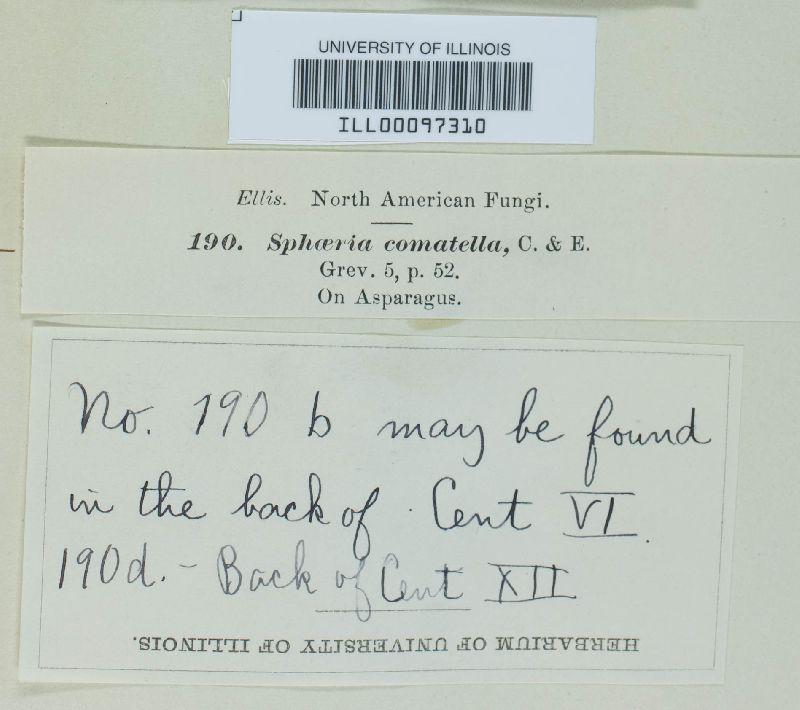 UNIVERSITY OF ILLINOIS
ILL00097310
Ellis. North American Fungi.
190. Sphæria comatella, C. & E.
Grev. 5, p. 52.
On Asparagus.
No. 190 b may be found
in the back of Cent VI.
190d. - Back of Cent XII
HERBARIUM OF UNIVERSITY OF ILLINOIS.